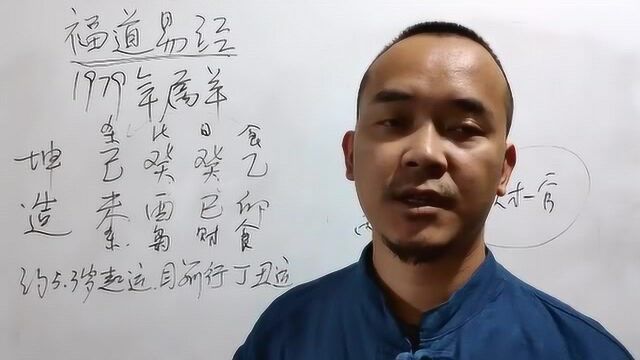 福道易经
1979年属羊
杀 比 日 食
坤 己 癸 癸 乙
造 未 酉 巳 卯
杀 枭 财 食
约5.3岁起运,目前行丁丑运
官